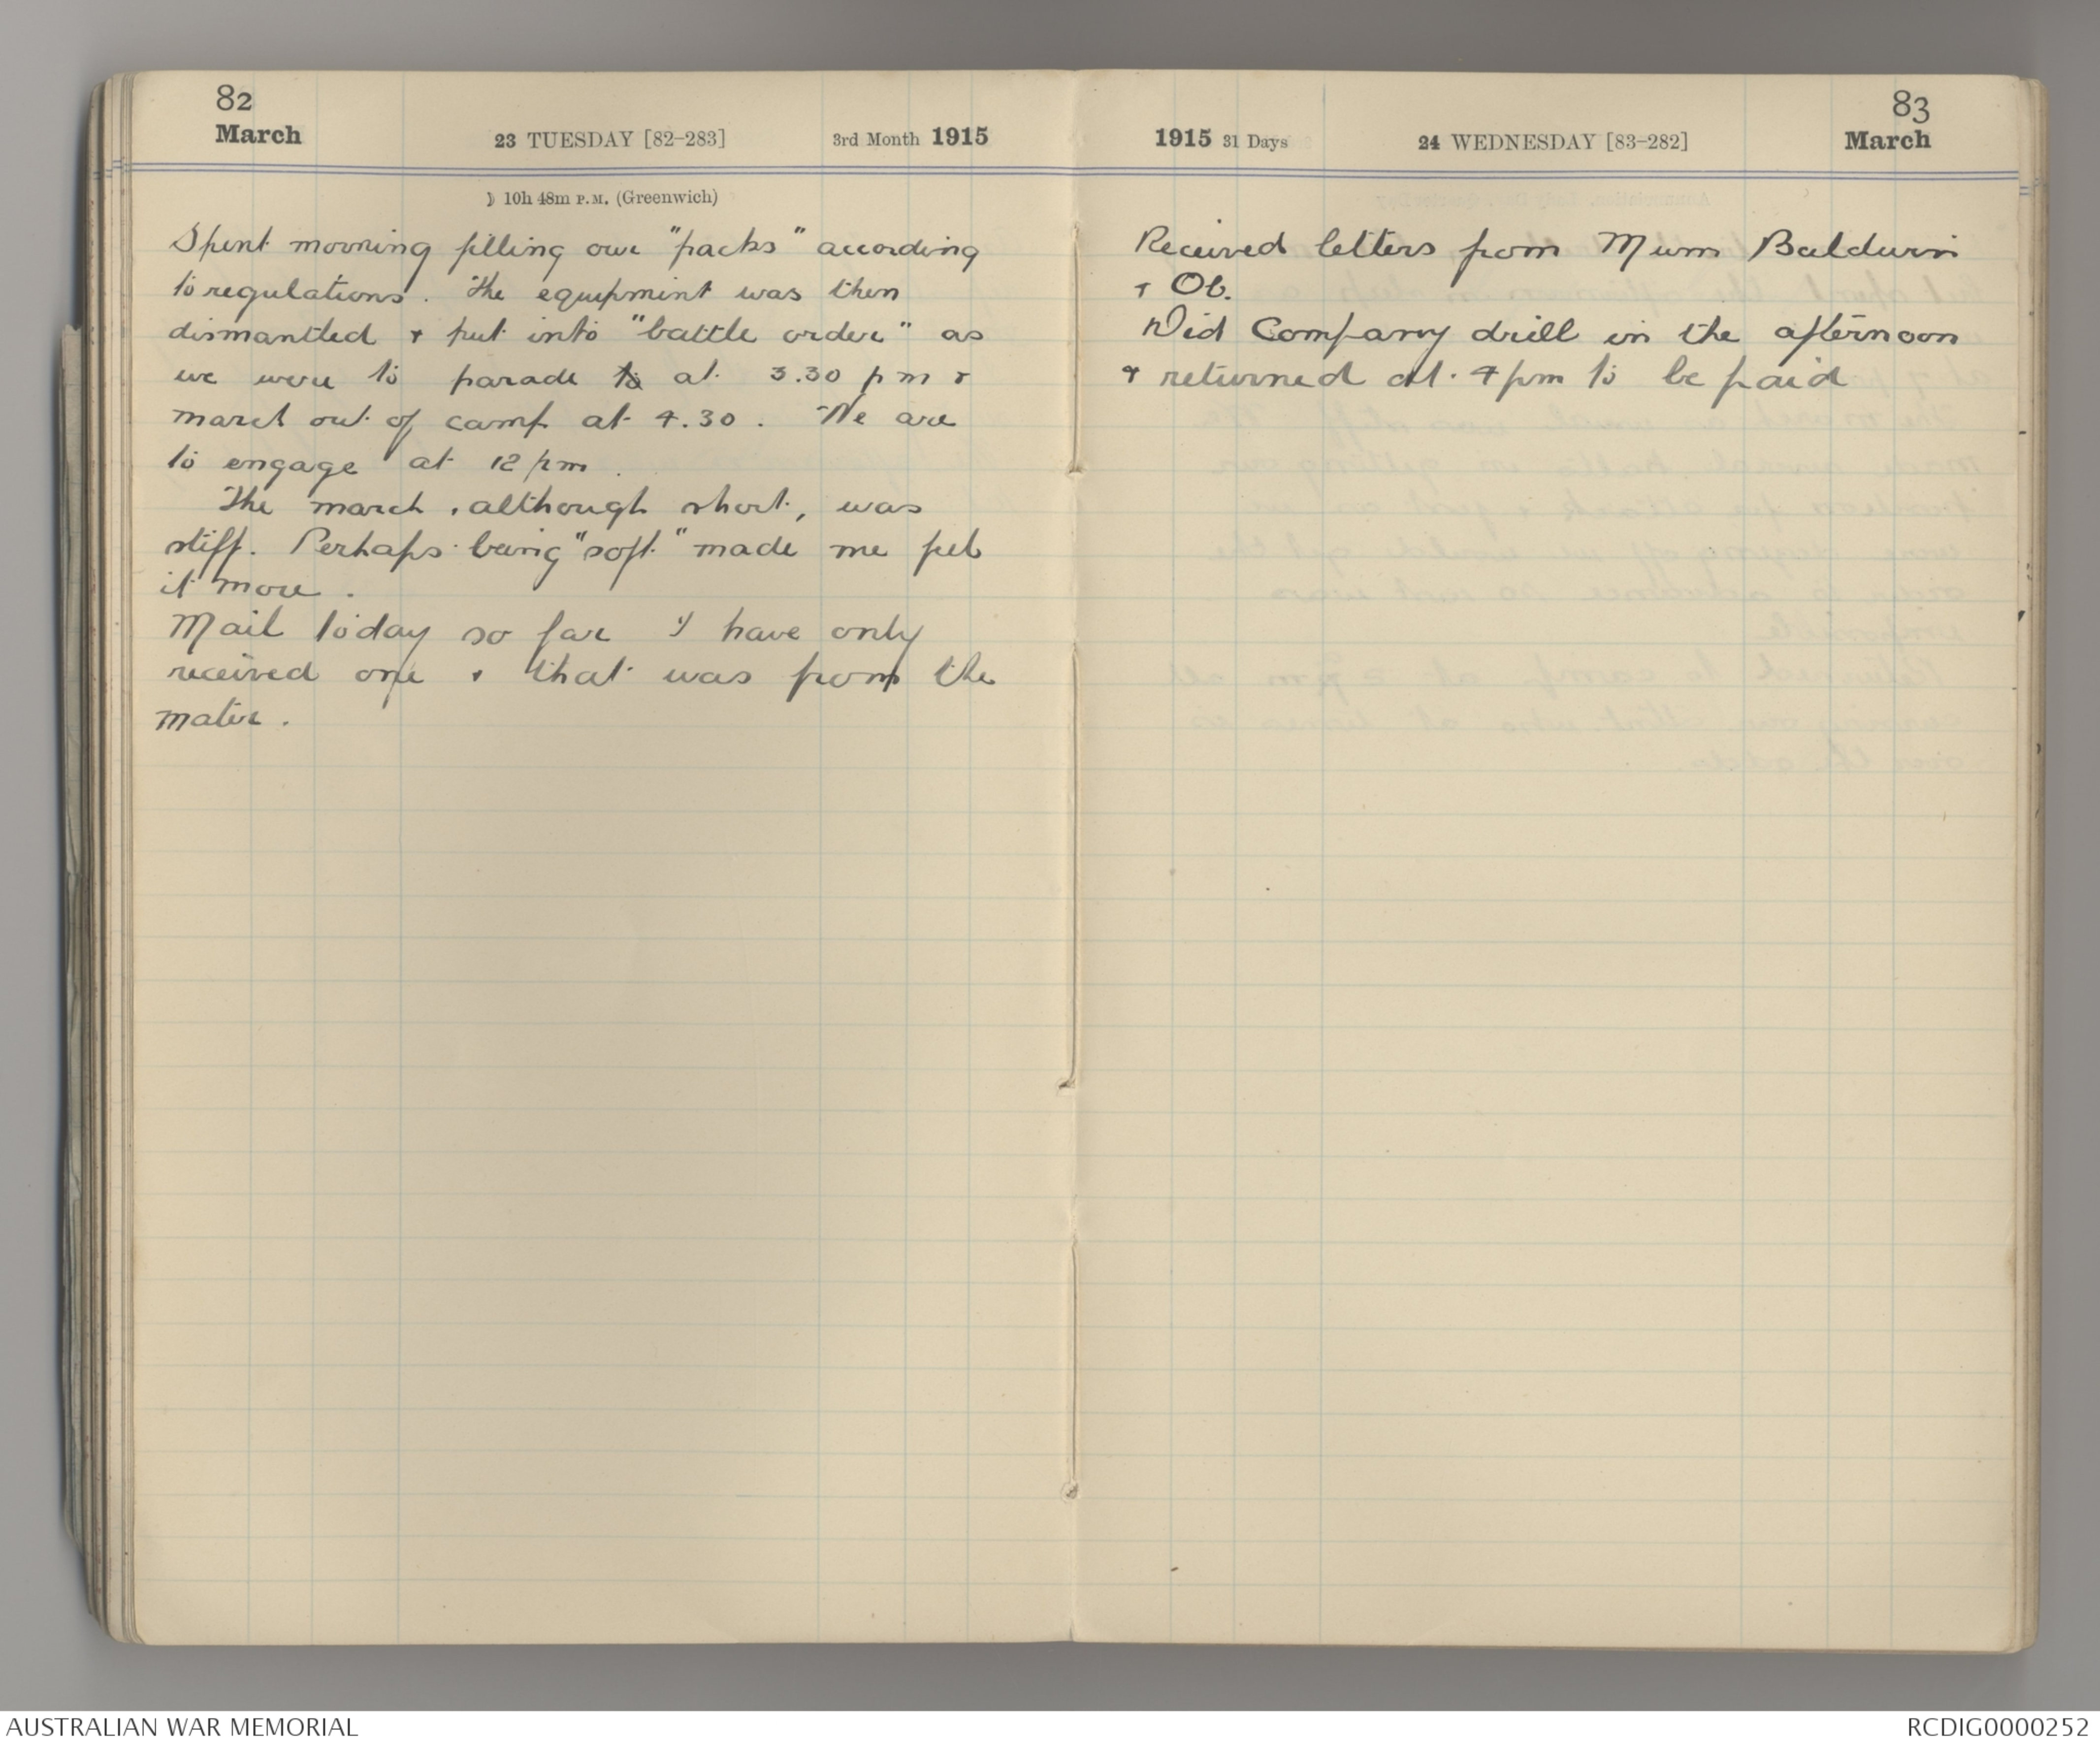 82
March 23 TUESDAY [82–283] 3rd Month 1915
☽ 10h 48m P.M. (Greenwich)
Spent morning filling our "packs" according
to regulations. The equipment was then
dismantled & put into "battle order" as
we were to parade to at 3.30 pm &
march out of camp at 4.30. We are
to engage at 12 pm.
The march, although short, was
stiff. Perhaps being "soft" made me feel
it more.
Mail today so far I have only
received one & that was from the
mater.
83
1915 31 Days 24 WEDNESDAY [83–282] March
Received letters from Mum Baldwin
& Ob.
Did Company drill in the afternoon
& returned at 4 pm to be paid
AUSTRALIAN WAR MEMORIAL
RCDIG0000252